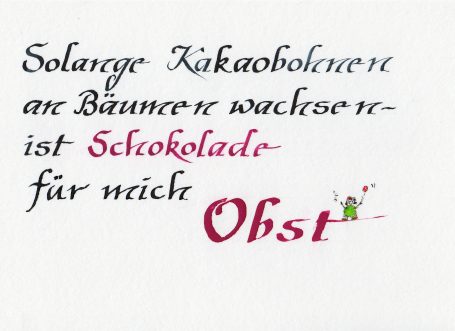 Solange Kakaobohnen
an Bäumen wachsen-
ist Schokolade
für mich
Obst